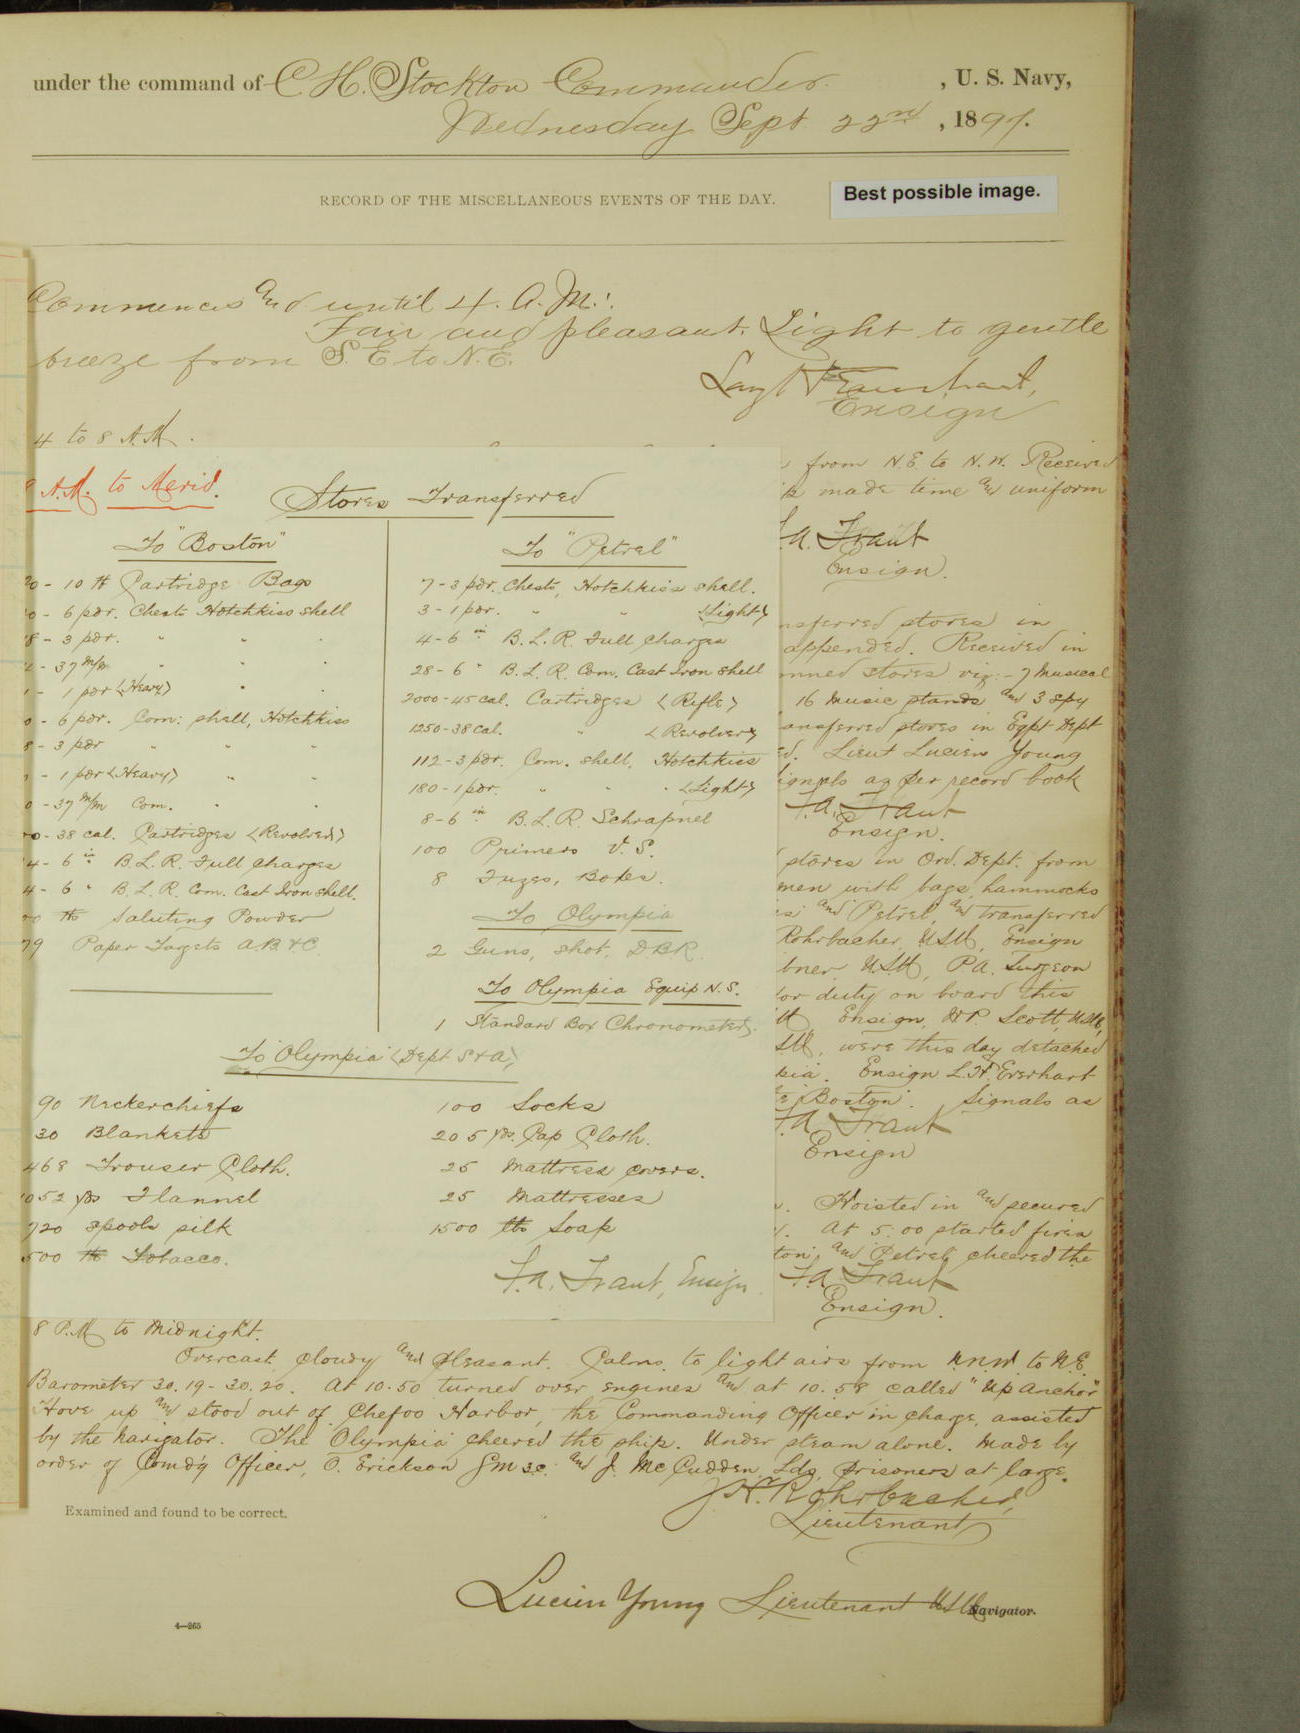 under the command of C H. Stockton Commander. , U. S. Navy,
Wednesday Sept 22nd , 1897.
RECORD OF THE MISCELLANEOUS EVENTS OF THE DAY.
Best possible image.
Commences and until 4. A. M.:
Fair and pleasant. Light to gentle
breeze from S. E to N. E.
Ensign
4 to 8 A.M.
from N. E. to N. W. Received
made time and uniform
A.M. to Merid.
Stores Transferred
F.A. Traut
Ensign.
To "Boston"
- 10 lb Cartridge Bags
- 6 pdr. Chests Hotchkiss shell
- 3 pdr. " " "
- 37 m/m " " "
- 1 pdr (Heavy) " "
- 6 pdr. Com: shell, Hotchkiss
- 3 pdr " " "
- 1 pdr (Heavy) " "
- 37 m/m Com. " "
- 38 cal. Cartridges (Revolver)
4 - 6 in B. L. R. Full Charges
4 - 6 " B. L. R. Com. Cast Iron shell.
lbs Saluting Powder
79 Paper Targets A B. & C.
To "Petrel"
7 - 3 pdr. Chests, Hotchkiss shell.
3 - 1 pdr. " " (Light)
4 - 6 in B. L. R. Full Charges
28 - 6 " B. L. R. Com. Cast Iron shell
2000 - 45 cal. Cartridges (Rifle)
1250 - 38 cal. " (Revolver)
112 - 3 pdr. Com. shell, Hotchkiss
180 - 1 pdr. " " " (Light)
8 - 6 in B. L. R. Schrapnel
100 Primers V. S.
8 Fuzes, Boxes.
To Olympia
2 Guns, shot, D B R.
To Olympia Equip N. S.
1 Standard Box Chronometer.
To "Olympia" (Dept S & A)
90 Neckerchiefs
30 Blankets
468 Trouser Cloth.
1052 yds Flannel
720 spools silk
500 lbs Tobacco.
100 Socks
205 yds. Cap Cloth.
25 Mattress covers.
25 Mattresses
1500 lbs Soap
F. A. Traut, Ensign
transferred stores in
appended. Received in
stores viz: - 7 musical
16 music stands and 3 spy
transferred stores in Eqpt Dept
Lieut Lucien Young
signals as per record book
F.A. Traut
Ensign.
stores in Ord. Dept. from
men with bags, hammocks
and Petrel, and transferred
Rohrbacher, USN, Ensign
USN, P.A. Surgeon
for duty on board this
Ensign, W.P. Scott, USN,
were this day detached
Ensign L. H. Everhart
Boston. Signals as
F.A. Traut
Ensign
Hoisted in and secured
At 5:00 started fires
and Petrel cheered the
F.A. Traut
Ensign.
8 P.M to Midnight.
Overcast cloudy and pleasant. Calms to light airs from NNW to N.E.
Barometer 30.19 - 30.20. At 10.50 turned over engines and at 10.58 called "Up Anchor"
Hove up and stood out of Chefoo Harbor, the Commanding Officer in charge, assisted
by the navigator. The Olympia cheered the ship. Under steam alone. Made by
order of Comd'g Officer, O. Erickson and J. McCudden, Lds, prisoners at large.
J. H. Rohrbacher,
Lieutenant
Examined and found to be correct.
Lucien Young Lieutenant USN Navigator.
4—265